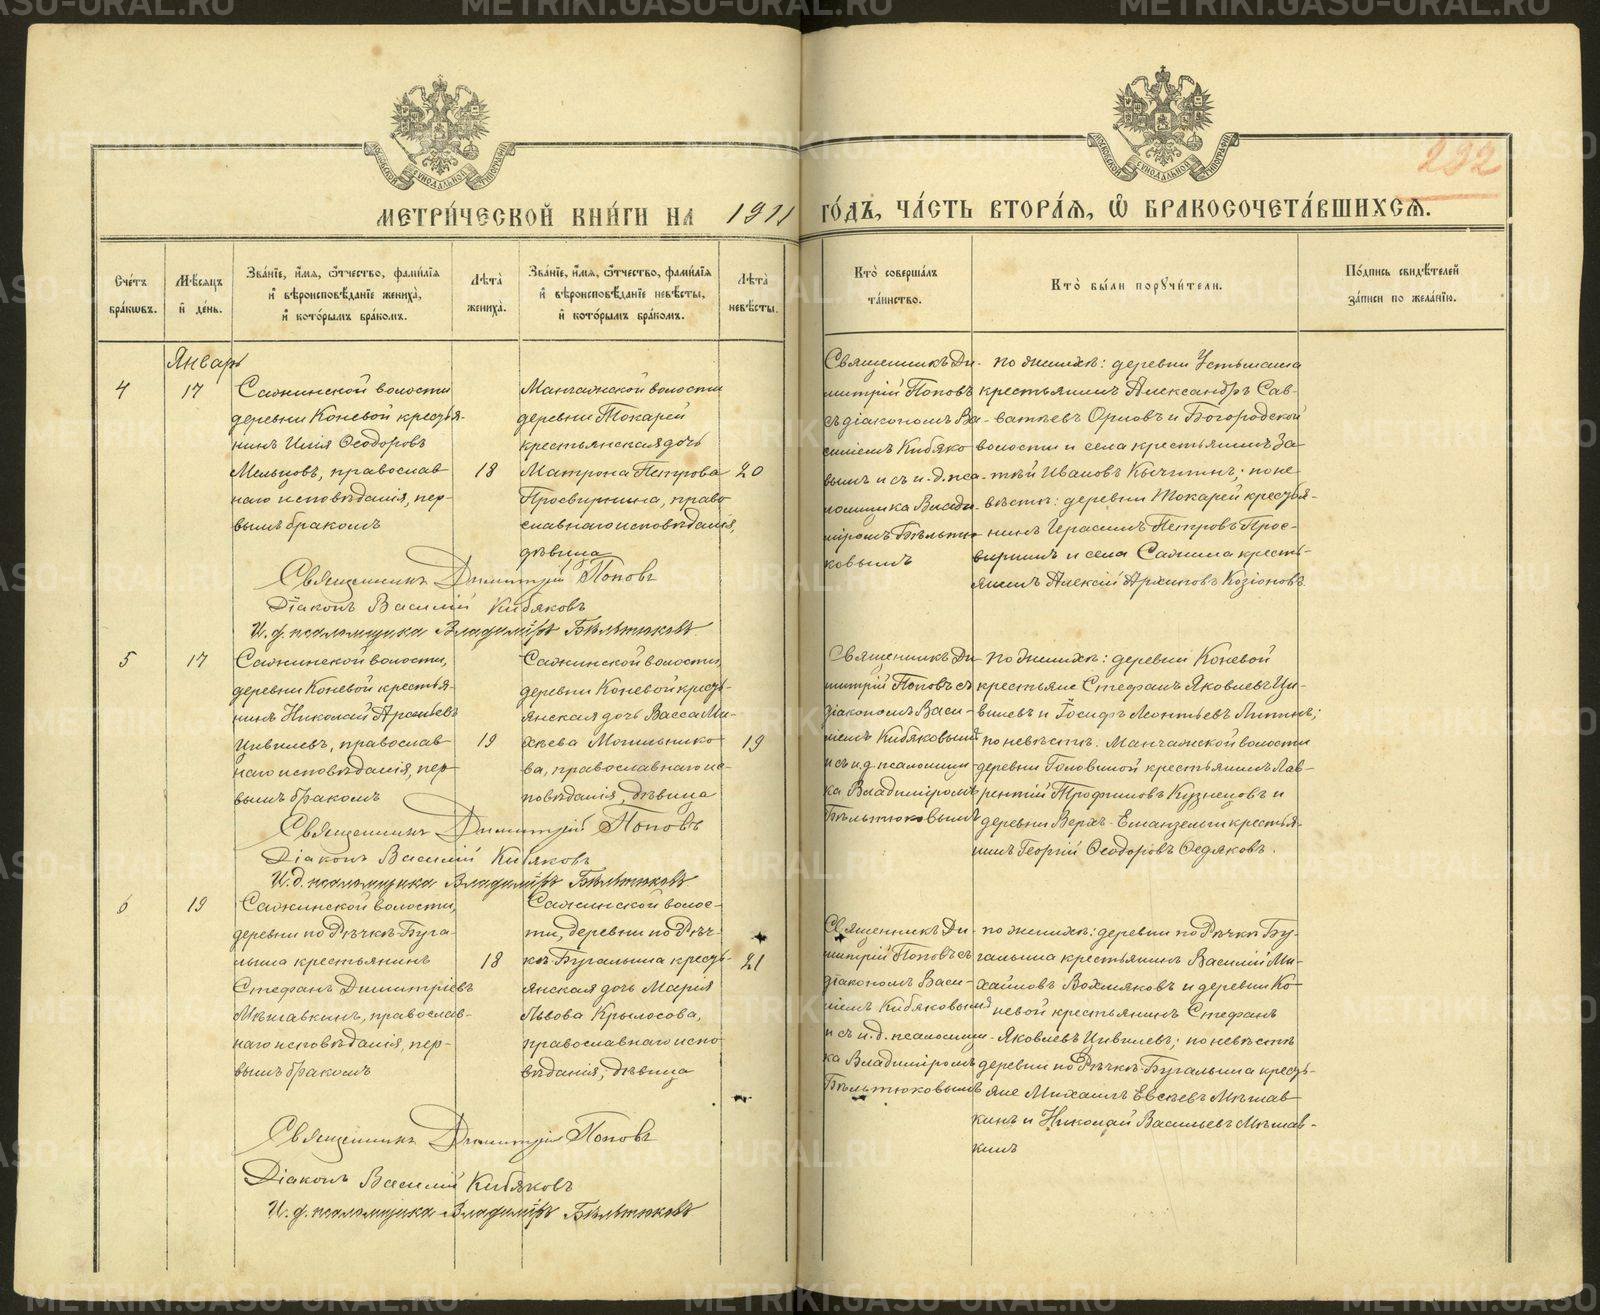 232
МЕТРИ́ЧЕСКОЙ КНИ́ГИ НА 1911 ГО́ДЪ, ЧА́СТЬ ВТОРА́Я, Ѽ БРАКОСОЧЕТА́ВШИХСЯ.
Сче́тъ бра́кѡвъ.
Мѣ́сяцъ и҆ де́нь.
Зва́нїе, и҆́мя, ѻ҆́тчество, фами́лїя и҆ вѣроисповѣ́данїе жениха̀, и҆ кото́рымъ бра́комъ.
Лѣ́та̀ жениха̀.
Зва́нїе, и҆́мя, ѻ҆́тчество, фами́лїя и҆ вѣроисповѣ́данїе невѣ́сты, и҆ кото́рымъ бра́комъ.
Лѣ́та̀ невѣ́сты.
Кто̀ соверша́лъ та́инство.
Кто̀ бы́ли поручи́тели.
По́дпись свидѣ́телей за́писи по жела́нїю.
Январь
4
17
Сажинской волости
деревни Коневой крестья-
нинъ Илія Ѳеодоровъ
Мельцовъ, православ
наго исповѣданія, пер-
вымъ бракомъ
18
Манчажской волости
деревни Токарей
крестьянская дочь
Матрона Петрова
Просвирнина, право
славнаго исповѣданія,
дѣвица
20
Священникъ Ди-
митрій Поповъ
съ діакономъ Ва-
силіемъ Кибяко
вымъ и съ и. д. пса-
ломщика Влади-
міромъ Бѣльтю
ковымъ
по женихѣ: деревни Устьмаша
крестьянинъ Александръ Сав-
ватѣевъ Орловъ и Богородской
волости и села крестьянинъ За
тѣй Ивановъ Кычигинъ; по не
вѣстѣ: деревни Токарей крестья-
нинъ Герасимъ Петровъ Прос-
виринъ и села Сажина кресть-
янинъ Алексій Архиповъ Козіоновъ.
Священникъ Димитрій Поповъ
Діаконъ Василій Кибяковъ
И. д. псаломщика Владиміръ Бѣльтюковъ
5
17
Сажинской волости,
деревни Коневой крестья-
нинъ Николай Арсеньевъ
Цивилевъ, православ
наго исповѣданія, пер-
вымъ бракомъ
19
Сажинской волости,
деревни Коневой кресть-
янская дочь Васса Ми-
хѣева Могильнико
ва, православнаго ис-
повѣданія, дѣвица
19
Священникъ Ди
митрій Поповъ съ
діакономъ Васи-
ліемъ Кибяковымъ
и съ и. д. псаломщи-
ка Владиміромъ
Бѣльтюковымъ
по женихѣ: деревни Коневой
крестьяне Стефанъ Яковлевъ Ци-
вилевъ и Іосифъ Леонтьевъ Липинъ;
по невѣстѣ. Манчажской волости
деревни Головиной крестьянинъ Лав-
рентій Трофимовъ Кузнецовъ и
деревни Верхъ-Еманзельги крестья-
нинъ Георгій Ѳеодоровъ Ѳедяковъ.
Священникъ Димитрій Поповъ
Діаконъ Василій Кибяковъ
И. д. псаломщика Владиміръ Бѣльтюковъ
6
19
Сажинской волости,
деревни по Рѣчкѣ Буга-
лыша крестьянинъ
Стефанъ Димитріевъ
Мѣшавкинъ, православ-
наго исповѣданія, пер-
вымъ бракомъ
18
Сажинской волос-
ти, деревни по Рѣч-
кѣ Бугалыша кресть-
янская дочь Марія
Львова Крылосова,
православнаго испо
вѣданія, дѣвица
21
Священникъ Ди-
митрій Поповъ съ
діакономъ Васи-
ліемъ Кибяковымъ
и съ и. д. псаломщи-
ка Владиміромъ
Бѣльтюковымъ
по женихѣ: деревни по Рѣчкѣ Бу-
галыша крестьянинъ Василій Ми-
хайловъ Вохмяковъ и деревни Ко
невой крестьянинъ Стефанъ
Яковлевъ Цивилевъ; по невѣстѣ
деревни по Рѣчкѣ Бугалыша кресть-
яне Михаилъ Евсѣевъ Мѣшав
кинъ и Николай Васильевъ Мѣшав-
кинъ
Священникъ Димитрій Поповъ
Діаконъ Василій Кибяковъ
И. д. псаломщика Владиміръ Бѣльтюковъ